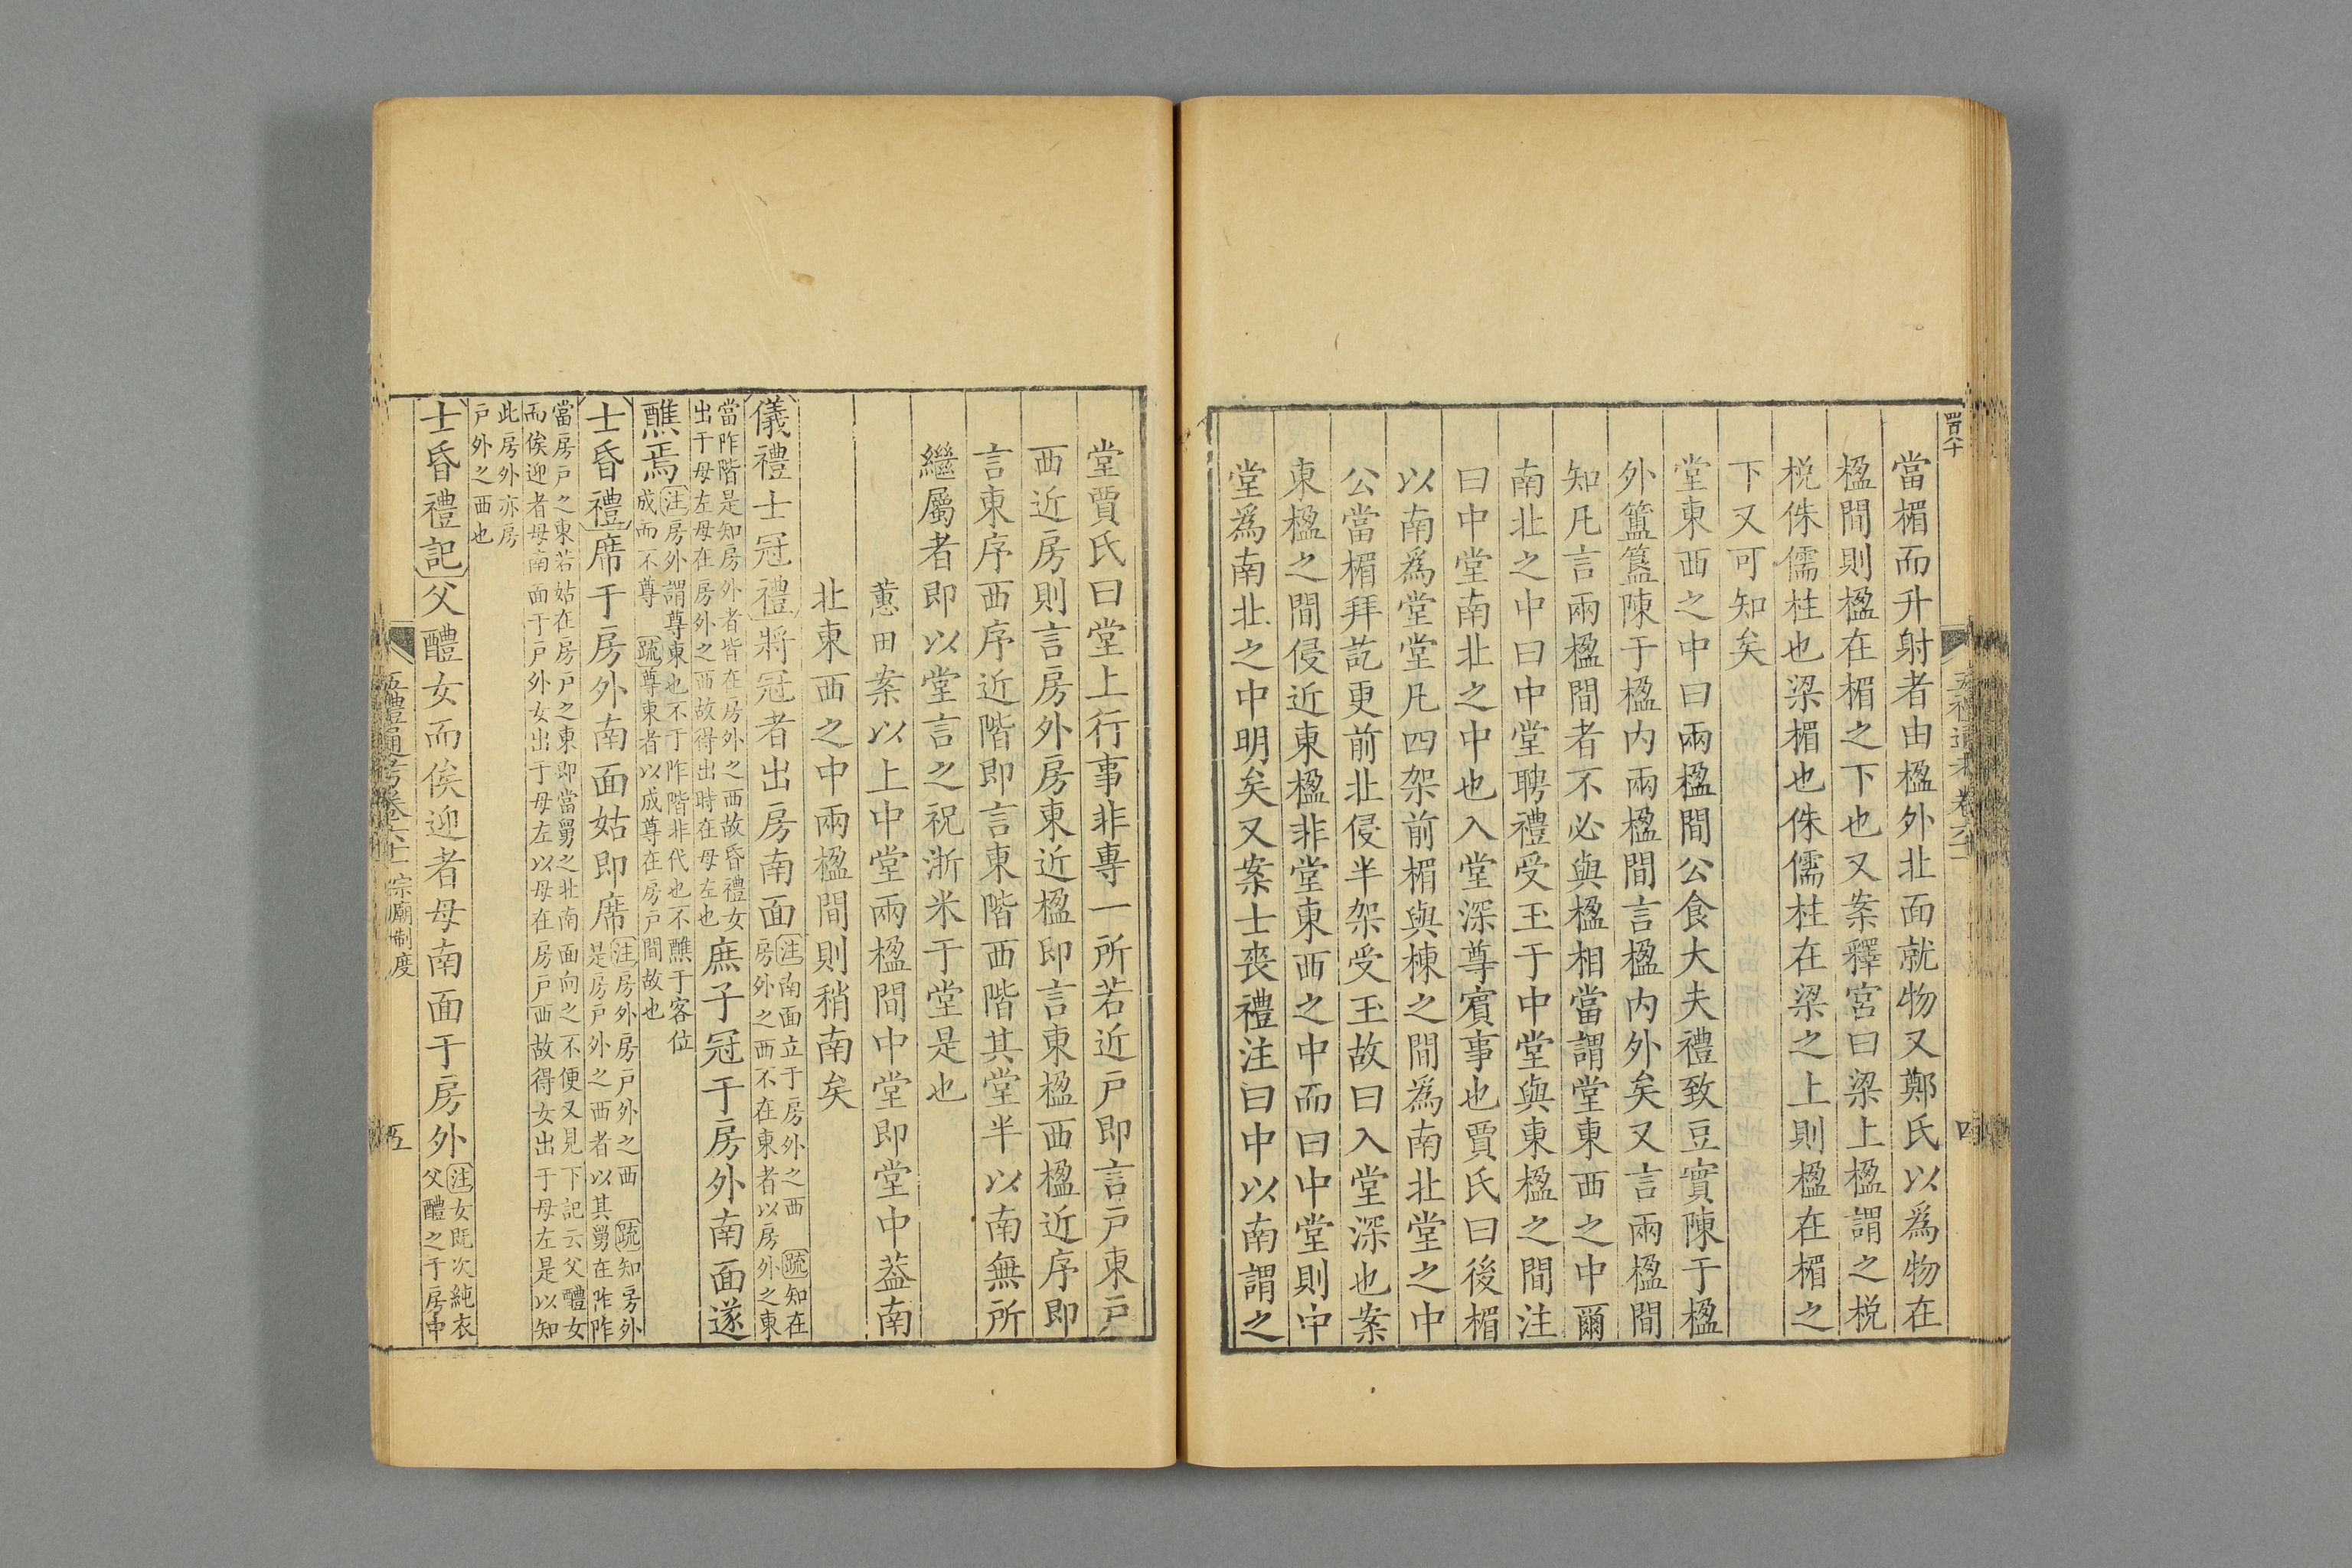 當楣而升射者由楹外北面就物又鄭氏以為物在
楹間則楹在楣之下也又案釋宮曰梁上楹謂之梲
梲侏儒柱也梁楣也侏儒柱在梁之上則楹在楣之
下又可知矣
堂東西之中曰兩楹間公食大夫禮致豆實陳于楹
外簠簋陳于楹内兩楹間言楹内外矣又言兩楹間
知凡言兩楹間者不必與楹相當謂堂東西之中爾
南北之中曰中堂聘禮受玉于中堂與東楹之間注
曰中堂南北之中也入堂深尊賓事也賈氏曰後楣
以南為堂堂凡四架前楣與棟之間為南北堂之中
公當楣拜訖更前北侵半架受玉故曰入堂深也案
東楹之間侵近東楹非堂東西之中而曰中堂則中
堂爲南北之中明矣又案士喪禮注曰中以南謂之
堂賈氏曰堂上行事非專一所若近戸即言戸東戸
西近房則言房外房東近楹即言東楹西楹近序即
言東序西序近階即言東階西階其堂半以南無所
繼屬者即以堂言之祝淅米于堂是也
蕙田案以上中堂兩楹間中堂即堂中葢南
北東西之中兩楹間則稍南矣
儀禮士冠禮將冠者出房南面注南面立于房外之西 疏知在
房外之西不在東者以房外之東
當阼階是知房外者皆在房外之西故昏禮女
出于母左母在房外之西故得出時在母左也庶子冠于房外南面遂
醮焉注房外謂尊東也不于阼階非代也不醮于客位
成而不尊 疏尊東者以成尊在房戸間故也
士昏禮席于房外南面姑即席注房外房戸外之西 疏知房外
是房戸外之西者以其舅在阼阼
當房戸之東若姑在房戸之東即當舅之北南面向之不便又見下記云父醴女
而俟迎者母南面于戸外女出于母左以母在房戸西故得女出于母左是以知
此房外亦房
戸外之西也
士昏禮記父醴女而俟迎者母南面于房外注女既次純衣
父醴之于房中
五禮通考卷六十一 宗廟制度
五